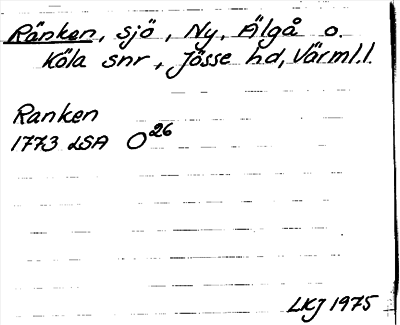 Ränken, sjö, Ny, Älgå o.
Köla snr, Jösse hd, Värml.l.
Ranken
1773 LSA O26
LKJ 1975